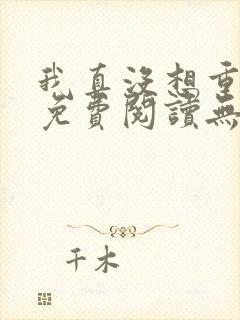 我真没想重
免費閱讀無
千木